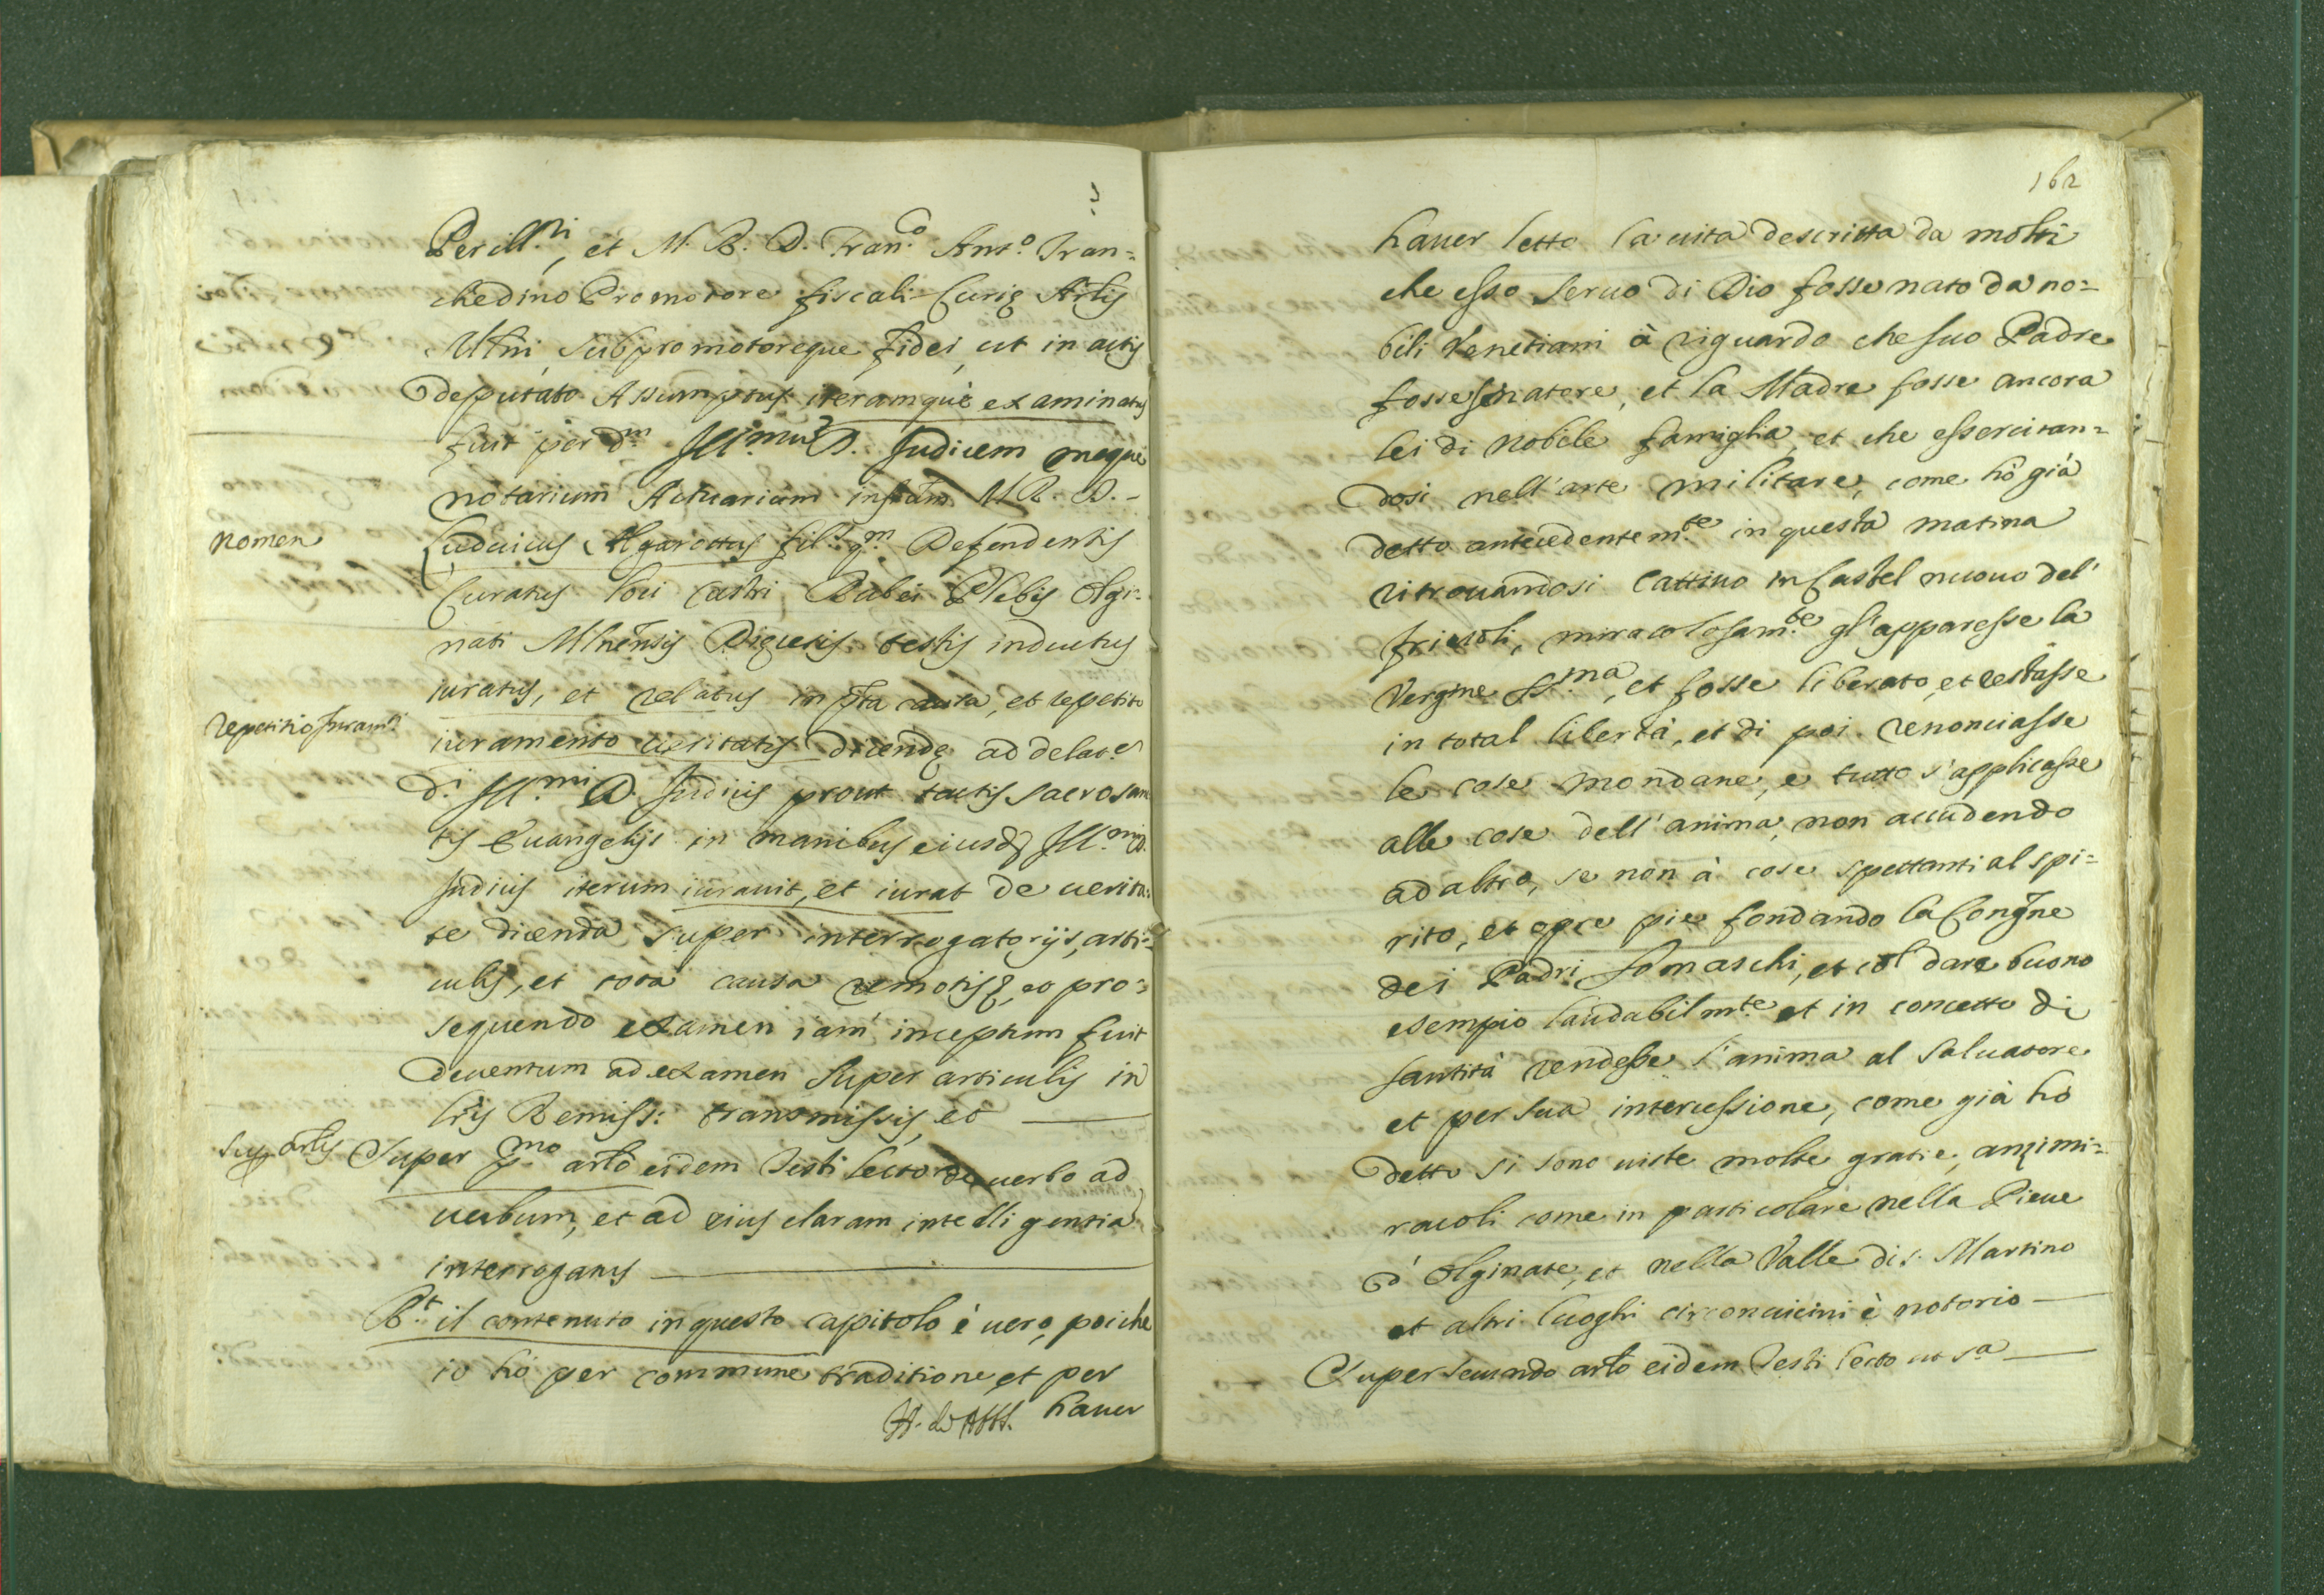 Perill.ri, et M. R. D. Fran.co Ant.o Fran=
chedino Promotore fiscali Curię Artis
Mlni, subpromotoreque fidei, ut in actis
deputato Assumptus iterumque examinatus
fuit per d.m Ill.mum D. Judicem meque
notarium Actuarium infrūm M. R. D.
nomen
Ludouicus Agarottus fil.s q.m Defendentis
Curatus loci Castri Rabei Plebis Olgi=
nati Mlnensis Dięcesis testis inductus
iuratus, et relatus in pñta causa, et repetito
repetitio Juram.ti
iuramento ueritatis dicendę ad delat.e
d.i Ill.mi D. Judicis prout tactis sacrosan
tis Euangelijs in manibus eiusd Ill.mi D.
Judicis iterum iurauit, et iurat de uerita=
te dicenda super interrogatorijs, arti=
culis, et tota causa remotisq, eo pro=
sequendo examen iam inceptum fuit
deuentum ad examen super articulis in
lris Remiss: transmissis, et
Sup artis
Super p.mo arlo eidem Testi lecto de uerbo ad
uerbum, et ad eius claram intelligentia
interrogatus
R.t il contenuto in questo capitolo è uero, poiche
io hò per commune traditione, et per
hauer
162
hauer letto la uita descritta da molti
che esso seruo di Dio fosse nato da no=
bili Venetiani à riguardo che suo Padre
fosse senatore, et la Madre fosse ancora
lei di nobile famiglia, et che essercitan=
dosi nell'arte militare, come hò già
detto antecedentem.te in questa matina
ritrouandosi cattiuo in Castel nuouo del'
friuoli, miracolosam.te gl'apparesse la
Vergine SS.ma, et fosse liberato, et restasse
in total libertà, et di poi renonciasse
le cose mondane, e tutto s'applicasse
alle cose dell'anima, non accudendo
ad altro, se non à cose spettanti al spi=
rito, et opre pie fondando la Congne
dei Padri Somaschi, et col dare buono
esempio laudabilm.te et in concetto di
santità rendesse l'anima al Saluatore
et per sua intercessione, come già hò
detto si sono uiste molte gratie, anzi mi=
racoli come in particolare nella Pieue
d'Olginate, et nella Valle di s. Martino
et altri luoghi circonuicini è notorio
Super secundo arlo eidem Testi lecto ut s.a